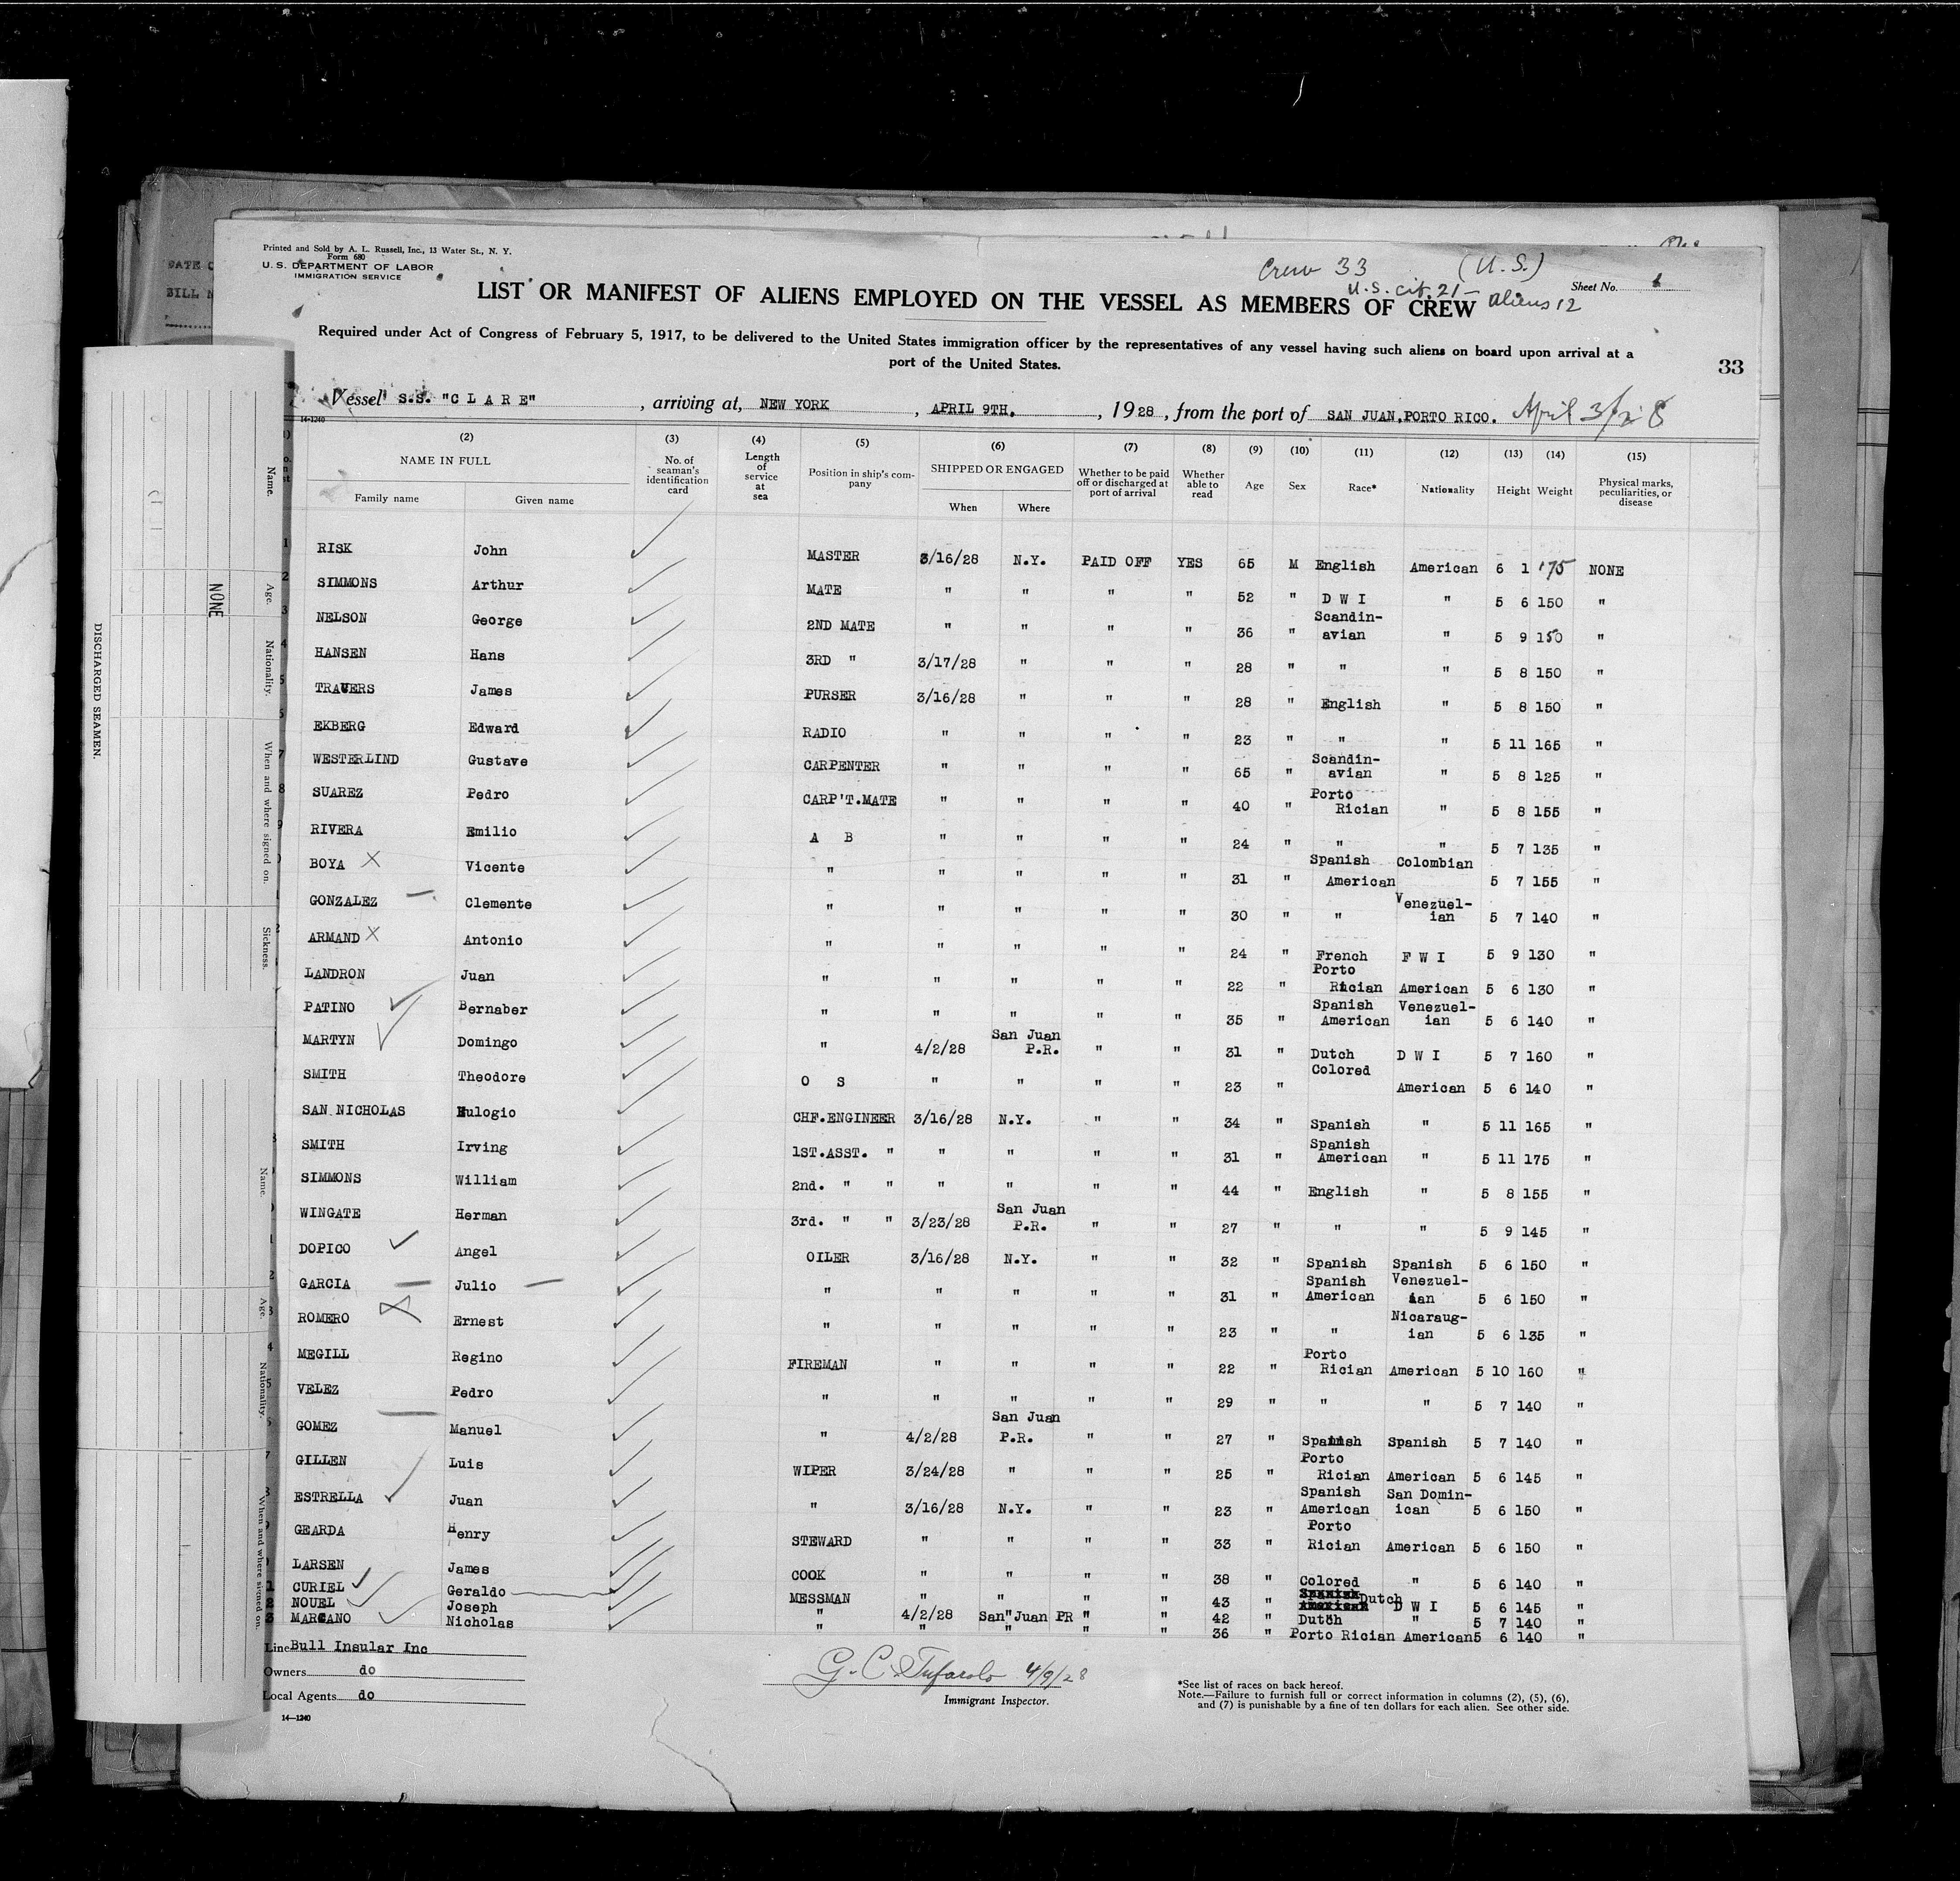 Printed and Sold by A. L. Russell, Inc., 13 Water St., N. Y.
Form 680
U. S. DEPARTMENT OF LABOR
IMMIGRATION SERVICE
Crew 33 (U.S.)
U.S. cit. 21 - aliens 12
Sheet No. 1
LIST OR MANIFEST OF ALIENS EMPLOYED ON THE VESSEL AS MEMBERS OF CREW
Required under Act of Congress of February 5, 1917, to be delivered to the United States immigration officer by the representatives of any vessel having such aliens on board upon arrival at a
port of the United States.
33
Vessel S.S. "CLARE", arriving at, NEW YORK, APRIL 9TH., 1928, from the port of SAN JUAN, PORTO RICO. April 3/28
14-1240
(2) (3) (4) (5) (6) (7) (8) (9) (10) (11) (12) (13) (14) (15)
NAME IN FULL
Family name Given name
No. of seaman's identification card
Length of service at sea
Position in ship's company
SHIPPED OR ENGAGED
When Where
Whether to be paid off or discharged at port of arrival
Whether able to read
Age Sex Race* Nationality Height Weight
Physical marks, peculiarities, or disease
1 RISK John MASTER 3/16/28 N.Y. PAID OFF YES 65 M English American 6 1 175 NONE
2 SIMMONS Arthur MATE " " " " 52 " D W I " 5 6 150 "
3 NELSON George 2ND MATE " " " " 36 " Scandin-avian " 5 9 150 "
4 HANSEN Hans 3RD " 3/17/28 " " " 28 " " " 5 8 150 "
5 TRAVERS James PURSER 3/16/28 " " " 28 " English " 5 8 150 "
6 EKBERG Edward RADIO " " " " 23 " " " 5 11 165 "
7 WESTERLIND Gustave CARPENTER " " " " 65 " Scandin-avian " 5 8 125 "
8 SUAREZ Pedro CARP'T.MATE " " " " 40 " Porto Rician " 5 8 155 "
9 RIVERA Emilio A B " " " " 24 " " " 5 7 135 "
BOYA X Vicente " " " " " 31 " Spanish American Colombian 5 7 155 "
GONZALEZ Clemente " " " " " 30 " " Venezuel-ian 5 7 140 "
ARMAND X Antonio " " " " " 24 " French F W I 5 9 130 "
LANDRON Juan " " " " " 22 " Porto Rician American 5 6 130 "
PATINO Bernaber " " " " " 35 " Spanish American Venezuel-ian 5 6 140 "
MARTYN Domingo " 4/2/28 San Juan P.R. " " 31 " Dutch D W I 5 7 160 "
SMITH Theodore O S " " " " 23 " Colored American 5 6 140 "
SAN NICHOLAS Eulogio CHF.ENGINEER 3/16/28 N.Y. " " 34 " Spanish " 5 11 165 "
SMITH Irving 1ST.ASST. " " " " " 31 " Spanish American " 5 11 175 "
SIMMONS William 2nd. " " " " " " 44 " English " 5 8 155 "
WINGATE Herman 3rd. " " 3/23/28 San Juan P.R. " " 27 " " " 5 9 145 "
DOPICO Angel OILER 3/16/28 N.Y. " " 32 " Spanish Spanish 5 6 150 "
GARCIA Julio " " " " " 31 " Spanish American Venezuel-ian 5 6 150 "
ROMERO Ernest " " " " " 23 " " Nicaraug-ian 5 6 135 "
MEGILL Regino FIREMAN " " " " 22 " Porto Rician American 5 10 160 "
VELEZ Pedro " " " " " 29 " " " 5 7 140 "
GOMEZ Manuel " 4/2/28 San Juan P.R. " " 27 " Spanish Spanish 5 7 140 "
GILLEN Luis WIPER 3/24/28 " " " 25 " Porto Rician American 5 6 145 "
ESTRELLA Juan " 3/16/28 N.Y. " " 23 " Spanish American San Domin-ican 5 6 150 "
GEARDA Henry STEWARD " " " " 33 " Porto Rician American 5 6 150 "
LARSEN James COOK " " " " 38 " Colored " 5 6 140 "
1 CURIEL Geraldo MESSMAN " " " " 43 " Dutch D W I 5 6 145 "
2 NOUEL Joseph " 4/2/28 San Juan PR " " 42 " Dutch " 5 7 140 "
3 MARCANO Nicholas " " " " " 36 " Porto Rician American 5 6 140 "
Line Bull Insular Inc
Owners do
Local Agents do
14-1240
G. C. Tufarolo 4/9/28
Immigrant Inspector.
*See list of races on back hereof.
Note.—Failure to furnish full or correct information in columns (2), (5), (6),
and (7) is punishable by a fine of ten dollars for each alien. See other side.
DISCHARGED SEAMEN.
Name.
Age.
NONE
Nationality.
When and where signed on.
Sickness.
Name.
Age.
Nationality.
When and where signed on.